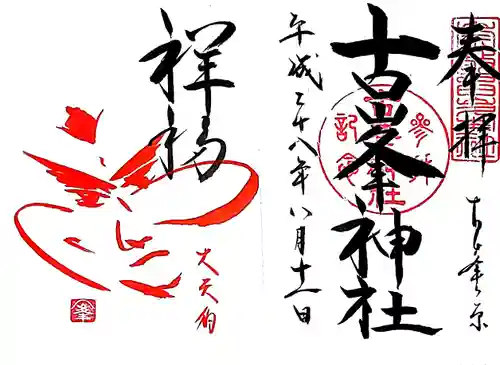 奉拝
古峯神社
参拝記念
平成二十八年八月十一日
祥福
大天狗